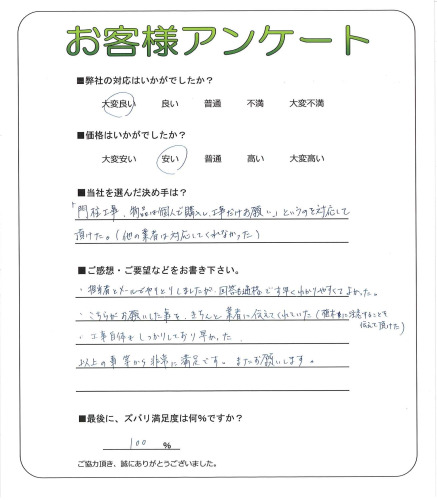 お客様アンケート
■弊社の対応はいかがでしたか？
大変良い 良い 普通 不満 大変不満
■価格はいかがでしたか？
大変安い 安い 普通 高い 大変高い
■当社を選んだ決め手は？
「門柱工事、物品は個人で購入し、工事だけお願い」というのを対応して
頂けた。（他の業者は対応してくれなかった）
■ご感想・ご要望などをお書き下さい。
・担当者とメールでやりとりしましたが、回答も適格で早くわかりやすくてよかった。
・こちらがお願いした事を、きちんと業者に伝えてくれていた（
に注意することを
伝えて頂けた）
・工事自体もしっかりしており早かった
以上の事等から非常に満足です。またお願いします。
■最後に、ズバリ満足度は何％ですか？
100 %
ご協力頂き、誠にありがとうございました。